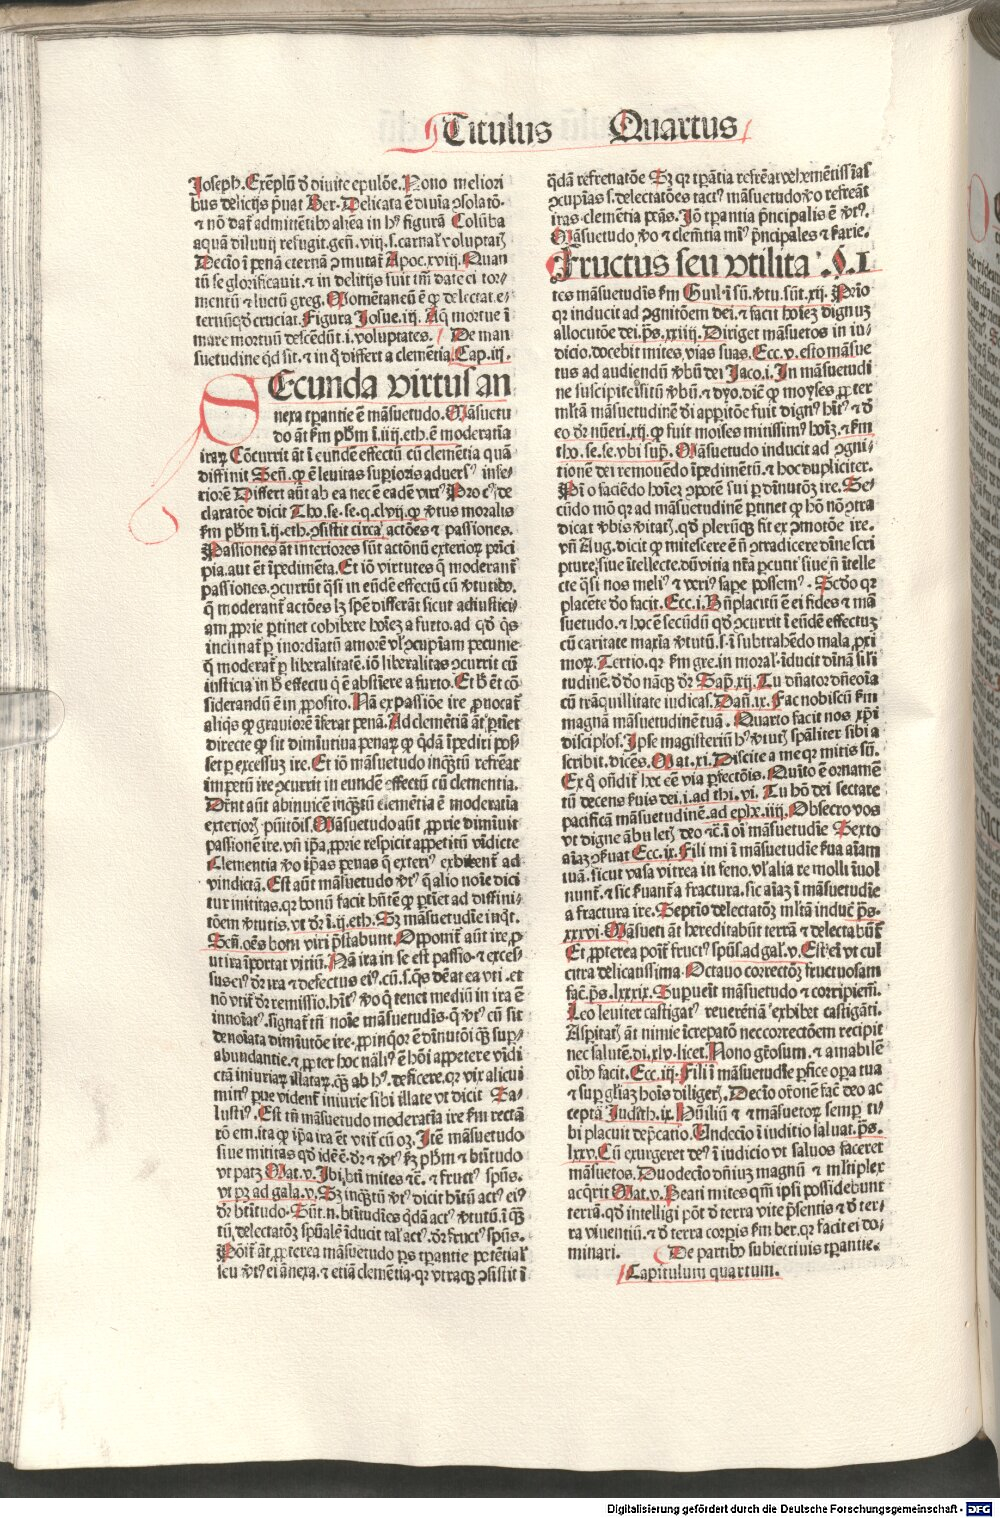 Titulus Quartus
Joseph. Exēplū d̄ diuite epulōe. Nono meliori
bus delicijs p̄uat Ber. Delicata ē diuīa ꝯsolatō.
⁊ nō dat᷑ admittētibꝰ aliēa in hꝰ figurā Colūba
aquā diluuij refugit. gen̄. viij. s. carnaꝉ voluptat᷑
Decīo ī penā eternā ꝯmutat᷑ Apoc. xviij. Quan
tū se glorificauit. ⁊ in delitijs fuit tm̄ date ei tor⸗
mentū ⁊ luctū greg. Momētaneū ē ꝙ delectat. e⸗
ternūqꝫ cruciat. Figura Josue. iij. Aq̄ mortue ī
mare mortuū descēdūt. i. voluptates. De man
suetudine qd̄ sit. ⁊ in q̄ differt a clemētia. Cap. iij.
SEcunda virtus an
nexa tꝑantie ē māsuetudo. Māsuetu
do āt ẜm pḣm ī. iiij. eth. ē moderatīa
iraꝝ Cōcurrit āt ī eundē effectū cū clemētia quā
diffinit Sen̄. ꝙ ē lenitas suꝑioris aduersꝰ infe⸗
riorē Differt aūt ab ea nec ē eadē virtꝰ Pro cꝰ de
claratōe dicit Tho. se. se. q. clvij. ꝙ v̄tus moralis
ẜm pḣm ī. ij. eth. ꝯsistit circa actōes ⁊ passiones.
Passiones āt interiores sūt actōnū exterioꝝ prīci
pia. aut ēt īpedimēta. Et iō virtutes q̄ moderant᷑
passiones. ꝯcurrūt q̄si in eundē effectū cū v̄tutibꝰ.
q̄ moderant᷑ actōes lꝫ spē differāt sicut ad iustici⸗
am ꝓprie ꝑtinet cohibere hoīeꝫ a furto. ad qd̄ q̄s
inclinat᷑ ꝑ inordīatū amorē vꝉ ꝯcupīam pecunie
q̄ moderat᷑ ꝑ liberalitatē. iō liberalitas ꝯcurrit cū
iusticia in h̄ effectu q̄ ē abstīere a furto. Et h̄ ēt cō
siderandū ē in ꝓposito. Nā ex passiōe ire ꝓuocat᷑
aliq̄s ꝙ grauiorē īferat penā. Ad clemētiā āt ꝑtīet
directe ꝙ sit diminutiua penaꝝ ꝙ q̄dā īpediri pos⸗
set ꝑ excessuꝫ ire. Et iō māsuetudo inq̄ꝫtū refreāt
impetū ire ꝯcurrit in eundē effectū cū clementia.
Dr̄nt aūt abinuicē inq̄ꝫtū clemētia ē moderatīa
exterioꝝ pūitōis. Māsuetudo aūt ꝓprie diminuit
passionē ire. vn̄ ip̄a ꝓprie respicit appetitū vīdicte
Clementia vo ip̄as penas q̄ exteriꝰ exhibent᷑ ad
vindictā. Est aūt māsuetudo v̄tꝰ q̄ alio noīe dici
tur mititas. qꝛ bonū facit hn̄tē ꝙ ꝑtīet ad diffini⸗
tōem v̄tutis. vt dꝛ ī. ij. eth. Sꝫ māsuetudīe inq̄t.
Sen̄. oēs boni viri p̄stabunt. Opponit᷑ aūt ire. ꝓ
ut ira īportat vitiū. Nā ira in se est passio. ⁊ exces⸗
sus eiꝰ dꝛ ira ⁊ defectus eiꝰ. cū. s. q̄s deat ea vti. et
nō vtit᷑ dꝛ remissio. hītꝰ vo q̄ tenet mediū in ira ē
innoīatꝰ. signat᷑ tn̄ noīe māsuetudīs. q̄ v̄tꝰ cū sit
denoīata dimīutōe ire. ꝓpinqꝛ ē dīnutōi q̄ꝫ suꝑ⸗
abundantie. ⁊ ꝓpter hoc nāliꝰ ē hōi appetere vīdi
ctā iniuriaꝝ illataꝝ. q̄ꝫ ab hꝰ. deficere. qꝛ vix alicui
minꝰ pue vident᷑ iniurie sibi illate vt dicit Sa⸗
lustiꝰ. Est tn̄ māsuetudo moderatīa ire ẜm rectā
rōem. ita ꝙ ip̄a ira ēt vtit᷑ cū oꝫ. Itē māsuetudo
siue mititas qd̄ idē ē. dꝛ ⁊ v̄tꝰ ẜꝫ pḣm ⁊ btītudo
vt patꝫ Mat. v. Ibi. bti mites ⁊c̄. ⁊ fructꝰ spūs.
vt pꝫ ad gala. v. Sꝫ inq̄ꝫtū v̄tꝰ dicit hītū actꝰ eiꝰ
dꝛ btītudo. Sūt. n. btītudīes q̄dā actꝰ v̄tutū. ī q̄ꝫ
tū delectatōeꝫ spūalē īducit tal᷑ actꝰ. dꝛ fructꝰ spūs.
Pōit᷑ āt ꝓpterea māsuetudo ꝑs tꝑantie potētial᷑
seu v̄tꝰ ei ānexa. ⁊ etiā clemētia. qꝛ vtraqꝫ ꝯsistit ī
q̄dā refrenatōe Sꝫ qꝛ tꝑātia refreāt vehemētissīas
ꝯcupīas s. delectatōes tactꝰ māsuetudo vo refreāt
iras. clemētia penas. Iō tꝑantia p̄ncipalis ē v̄tꝰ.
Māsuetudo vo ⁊ clemētia minꝰ p̄ncipales ⁊ ẜarie.
Fructus seu vtilita §. I
tes māsuetudīs ẜm Guil. ī sū. v̄tu. sūt. xij. Prīo
qꝛ inducit ad ꝯgnitōem dei. ⁊ facit hoīeꝫ dignuꝫ
allocutōe dei. ps. xxiiij. Diriget māsuetos in iu⸗
dicio. docebit mites vias suas. Ecc. v. esto māsue
tus ad audiendū v̄bū dei Jaco. i. In māsuetudi
ne suscipite īsitū v̄bū. ⁊ dyo. dic̄ ꝙ moyses ꝓpter
mꝉtā māsuetudinē dī appitōe fuit dignꝰ hr̄i ⁊ d̄
eo dꝛ nūeri. xij. ꝙ fuit moises mitissimꝰ hoīꝫ. ⁊ ẜm
tho. se. se. vbi supͣ. Māsuetudo inducit ad ꝯgni⸗
tionē dei remouēdo īpedimētū. ⁊ hoc dupliciter.
Pͥ o faciēdo hoieꝫ ꝯpotē sui ꝑ dīnutōꝫ ire. Se⸗
cūdo mō qꝛ ad māsuetudinē ꝑtinet ꝙ hō nō ꝯtra
dicat v̄bis v̄itat᷑. qd̄ plerūqꝫ fit ex ꝯmotōe ire.
vn̄ Aug. dicit ꝙ mitescere ē nō ꝯtradicere dīne scri
pture. siue ītellecte. dū vitia nr̄a ꝑcutit siue nō ītelle
cte q̄si nos meliꝰ ⁊ veriꝰ sape possemꝰ. Scdo qꝛ
placēte do facit. Ecc. i. Bn̄placitū ē ei fides ⁊ mā
suetudo. ⁊ hoc ē secūdū qd̄ ꝯcurrit ī eundē effectuꝫ
cū caritate maxīa v̄tutū. s. ī subtrahēdo mala ꝓxi
moꝝ. Tertio. qꝛ ẜm gre. in moral. īducit dīnā sīli
tudinē. d̄ do nāqꝫ dꝛ Sap. xij. Tu dn̄ator dn̄eoīa
cū trāquillitate iudicas. Dan̄. ix. Fac nobiscū ẜm
magnā māsuetudinē tuā. Quarto facit nos xp̄i
discip̄los. Ipse magisteriū hꝰ v̄tut᷑ spāliter sibi a
scribit. dicēs. Mat. xi. Discite a me qꝛ mitis sū.
Ex q̄ on̄dit᷑ hec eē via ꝑfectōis. Quīto ē ornamē
tū decens ẜuis dei. i. ad thi. vi. Tu hō dei sectare
pacificā māsuetudinē. ad ephe. iiij. Obsecro vos
vt digne ābuletꝭ deo ⁊c̄. ī oī māsuetudīe Sexto
aīaꝫ ꝯẜuat Ecc. ix. Fili mi ī māsuetudīe ẜua aīam
tuā. sicut vasa vitrea in feno. vꝉ alia re molli īuol
uunt᷑. ⁊ sic ẜuant᷑ a fractura. sic aīaꝫ ī māsuetudīe
a fractura ire. Septīo delectatōꝫ mꝉtā inducit ps.
xxxvi. Māsueti āt hereditabūt terrā ⁊ delectabūt᷑
Et ꝓpterea poīt᷑ fructꝰ spūs. ad gal. v. Est eī vt cul
citra delicatissima. Octauo correctōꝫ fructuosam
fac̄. ps. lxxxix. Superueīt māsuetudo ⁊ corripiem̄.
Leo leuiter castigatꝰ reuerētiā exhibet castigāti.
Aspitat᷑ āt nimie īcrepatō nec correctōem recipit
nec salutē. di. xlv. licet. Nono gr̄osum. ⁊ amabilē
oībꝰ facit. Ecc. iij. Fili ī māsuetudīe ꝑfice oꝑa tua
⁊ suꝑ gl̄iaꝫ hoīs diliger᷑. Decīo orōnē fac̄ deo ac
ceptā Judith. ix. Hūiliū ⁊ ⁊ māsuetoꝝ semꝑ ti⸗
bi placuit dep̄catio. Undecīo ī iuditio saluat. ps.
lxxv. Cū exurgeret deꝰ ī iudicio vt saluos faceret
māsuetos. Duodecīo dn̄iuꝫ magnū ⁊ mꝉtiplex
acq̄rit Mat. v. Beati mites qm̄ ipsi possidebunt
terrā. qd̄ intelligi pōt d̄ terra vite p̄sentis ⁊ d̄ ter⸗
ra viuentiū. ⁊ d̄ terra corpis ẜm ber. qꝛ facit ei do⸗
minari. De partibꝰ subiectiuis tꝑantie.
Capitulum quartum.
Digitalisierung gefördert durch die Deutsche Forschungsgemeinschaft - DFG